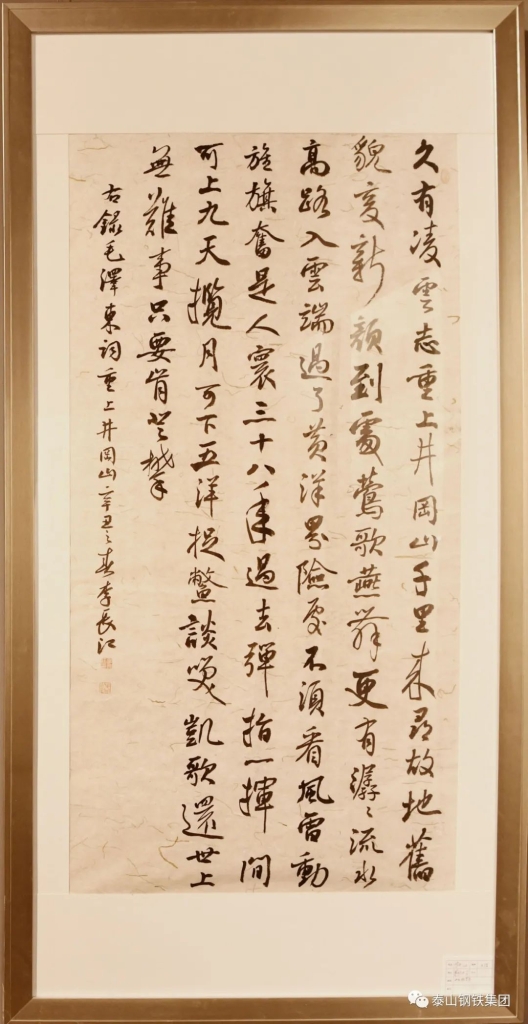 久有凌雲志重上井岡山千里来尋故地舊
貌变新颜到處鶯歌燕舞更有潺〻流水
高路入雲端過了黄洋界險處不須看風雷動
旌旗奮是人寰三十八年過去彈指一揮間
可上九天攬月可下五洋捉鱉談笑凱歌還世上
無難事只要肯登攀
右錄毛澤東詞重上井岡山辛丑之春李長江
泰山钢铁集团